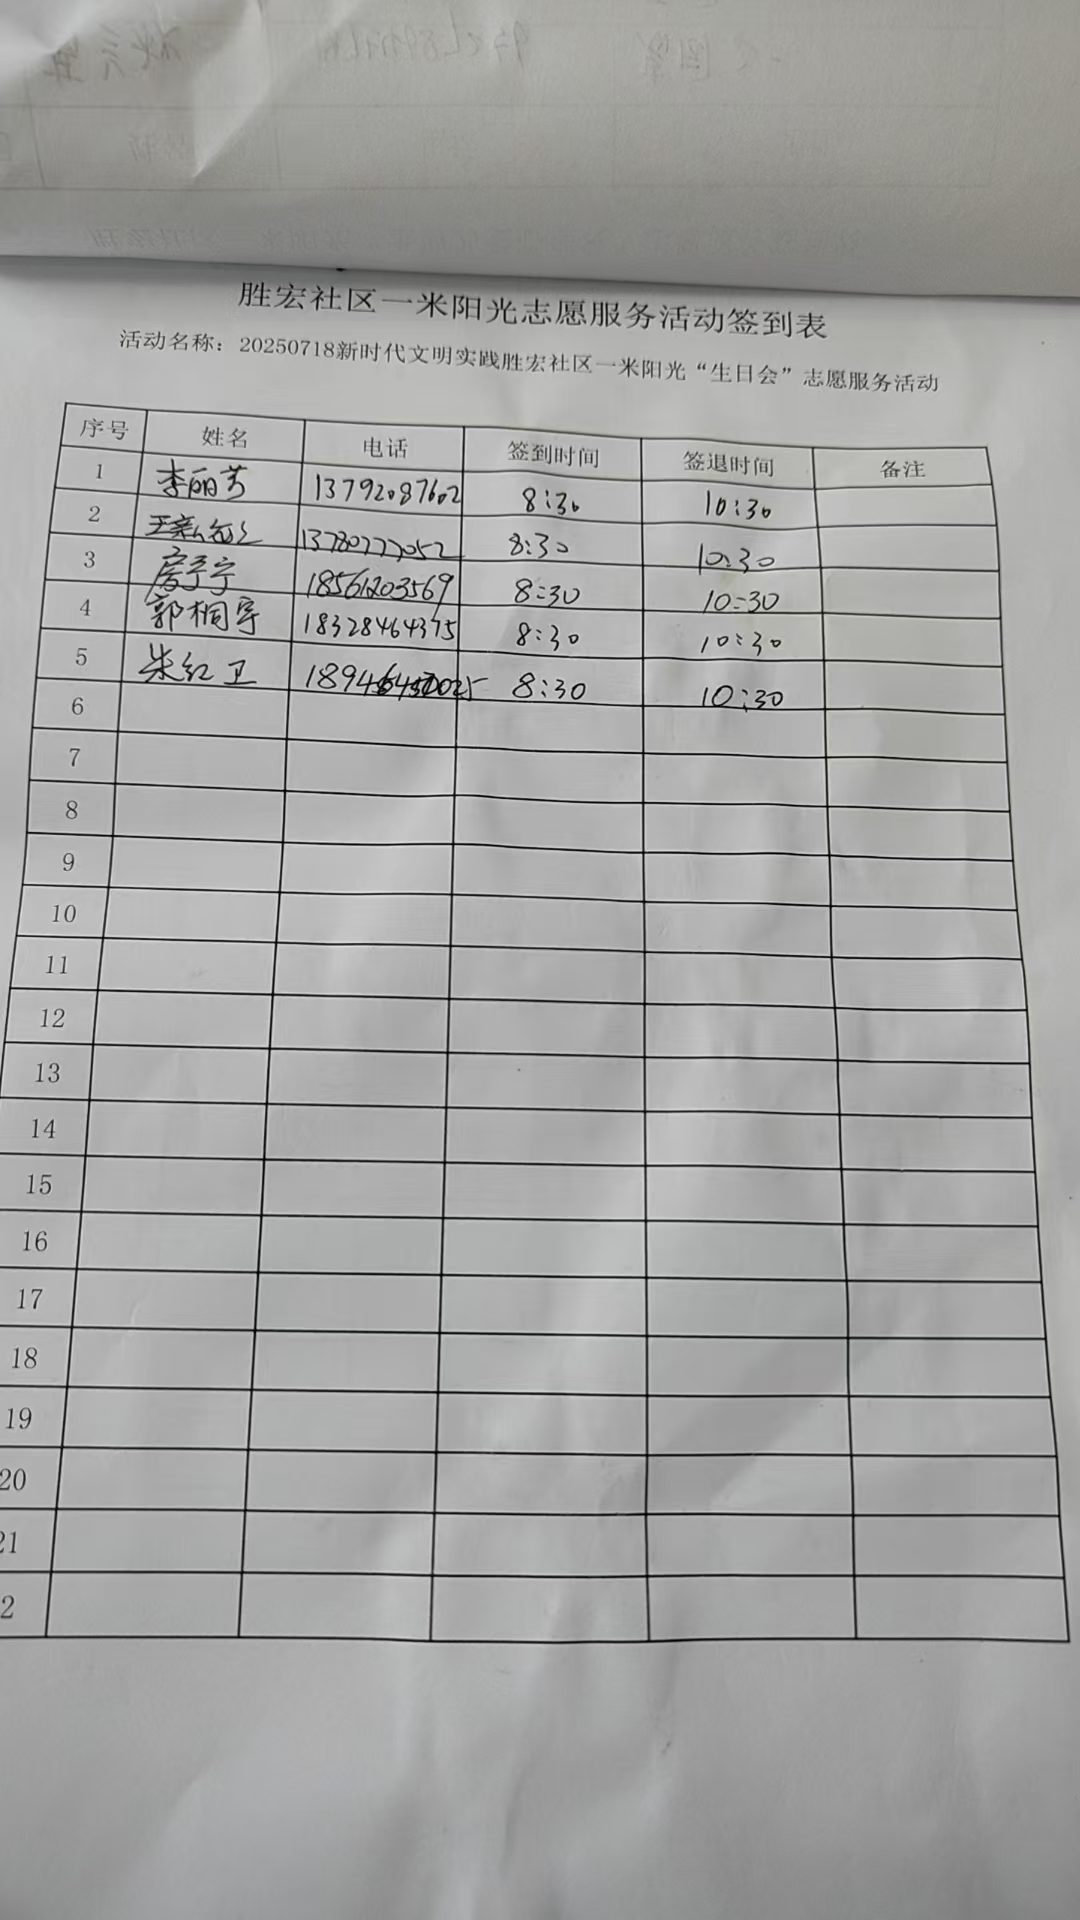 胜宏社区一米阳光志愿服务活动签到表
活动名称：20250718新时代文明实践胜宏社区一米阳光“生日会”志愿服务活动
序号 姓名 电话 签到时间 签退时间 备注
1 李丽芳 13792087602 8:30 10:30
2 13780777052 8:30 10:30
3 房宁宁 18561203569 8:30 10:30
4 郭桐宇 18328464375 8:30 10:30
5 朱红卫 8:30 10:30
6
7
8
9
10
11
12
13
14
15
16
17
18
19
20
21
2